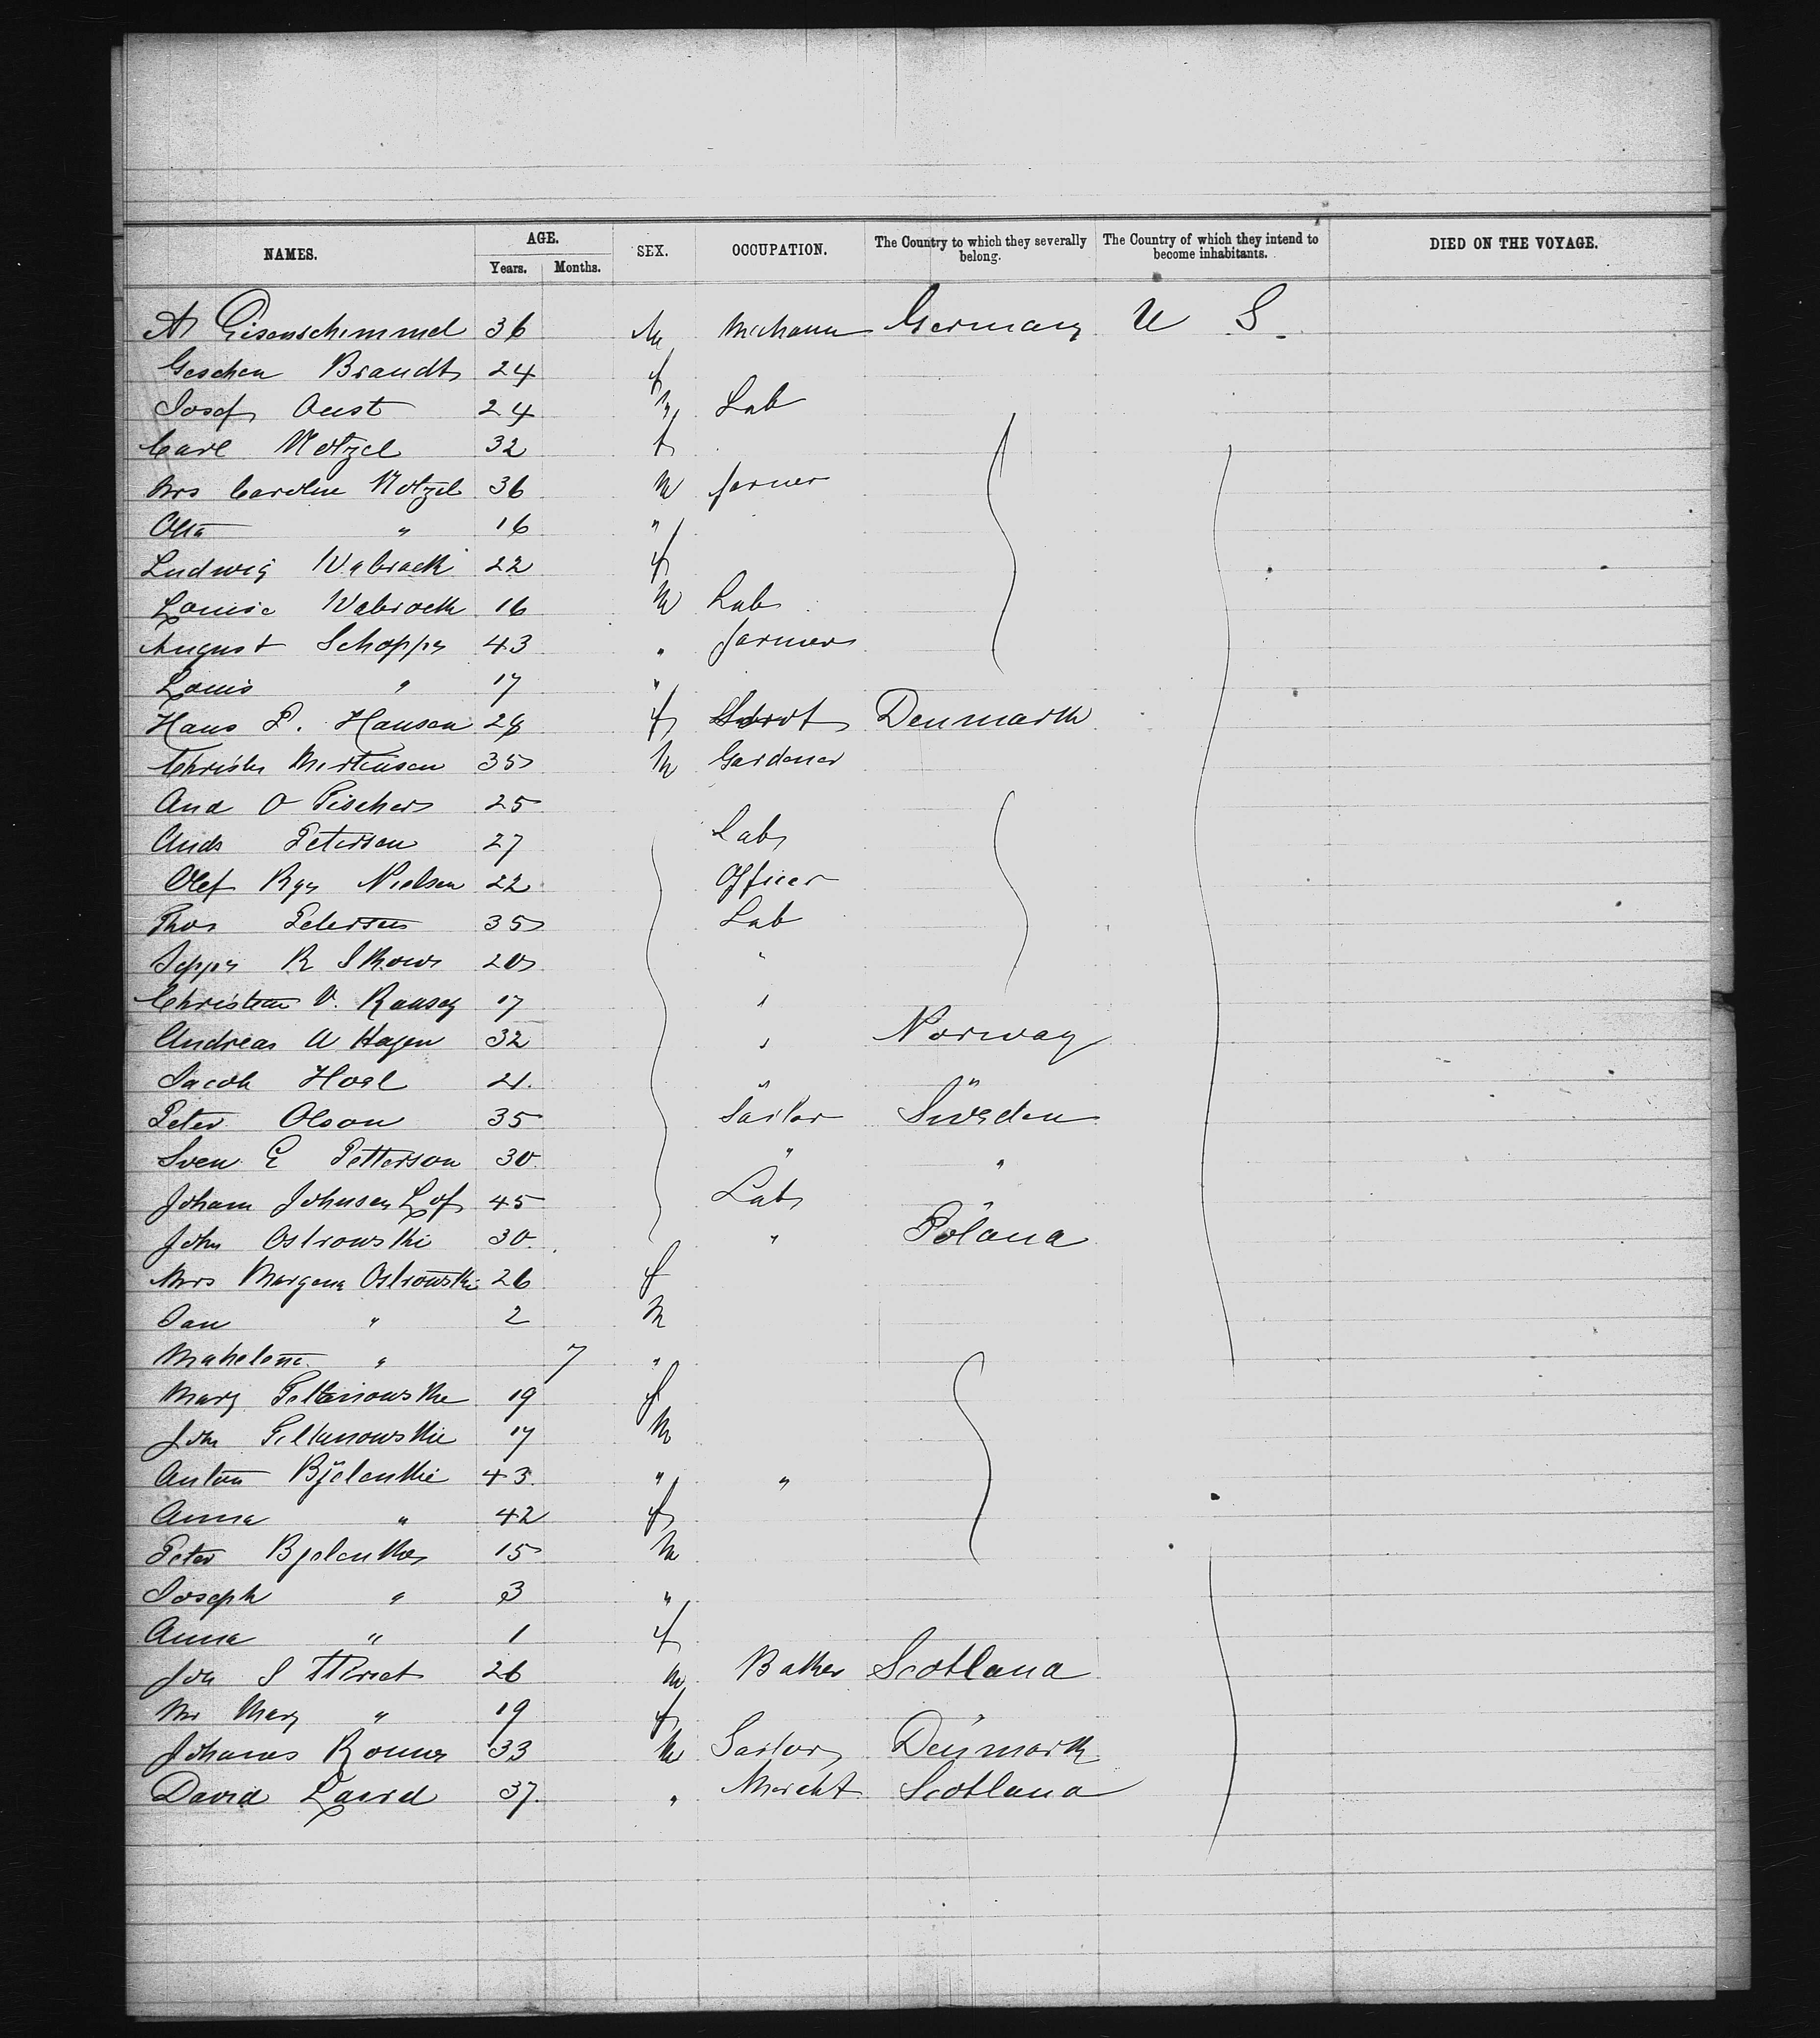 NAMES. AGE. Years. Months. SEX. OCCUPATION. The Country to which they severally belong. The Country of which they intend to become inhabitants. DIED ON THE VOYAGE.
A Eisenschimmel 36 M Germany U S.
Geschen Brandt 24 f
Josef Aust 24 M Lab
Carl Wetzel 32 f
Mrs Caroline Wetzel 36 M farmer
Otto " 16 "
Ludwig Wabrock 22 f
Louise Wabrock 16 M Lab
August Schopps 43 " farmer
Louis " 17 "
Hans P. Hansen 28 f Servt Denmark
Christn Mortensen 35 M Gardener
And O Fischer 25
Ands Petersen 27 Lab
Olef Nielsen 22 Officer
Thos Petersen 35 Lab
Jeppy R Skow 20 "
Christian V. 17 "
Andreas A Hagen 32 " Norway
Jacob Hoel 21. " "
Peter Olson 35 Sailor Sweden
Sven E Petterson 30 " "
Johan Johnsen Lof 45 Lab "
John Ostrowski 30. " Poland
Mrs Ostrowski 26 f
Jan " 2 M
" 7 "
Mary 19 f
John 17 M
Anton 43. " "
Anna " 42 f
Peter 15 M
Joseph " 3 "
Anna " 1 f
Jon S 26 M Baker Scotland
Mrs Mary " 19 f "
Johanes 33 M Sailor Denmark
David Laird 37. " Mercht Scotland